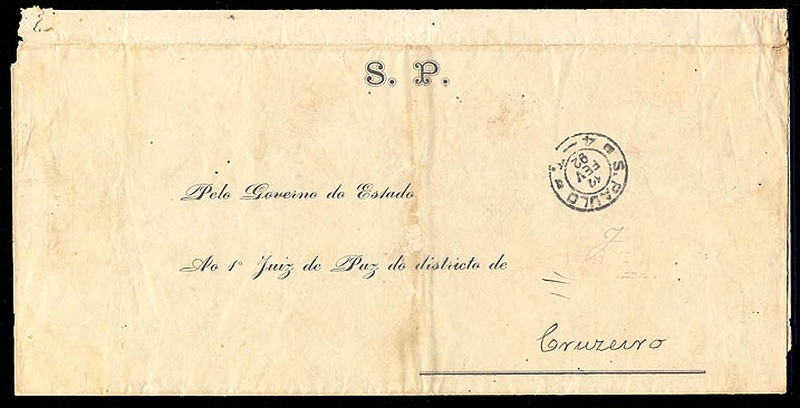 S. P.
Pelo Governo do Estado
Ao 1º Juiz de Paz do districto de
Cruzeiro
S. PAULO
4
12
FEV
92